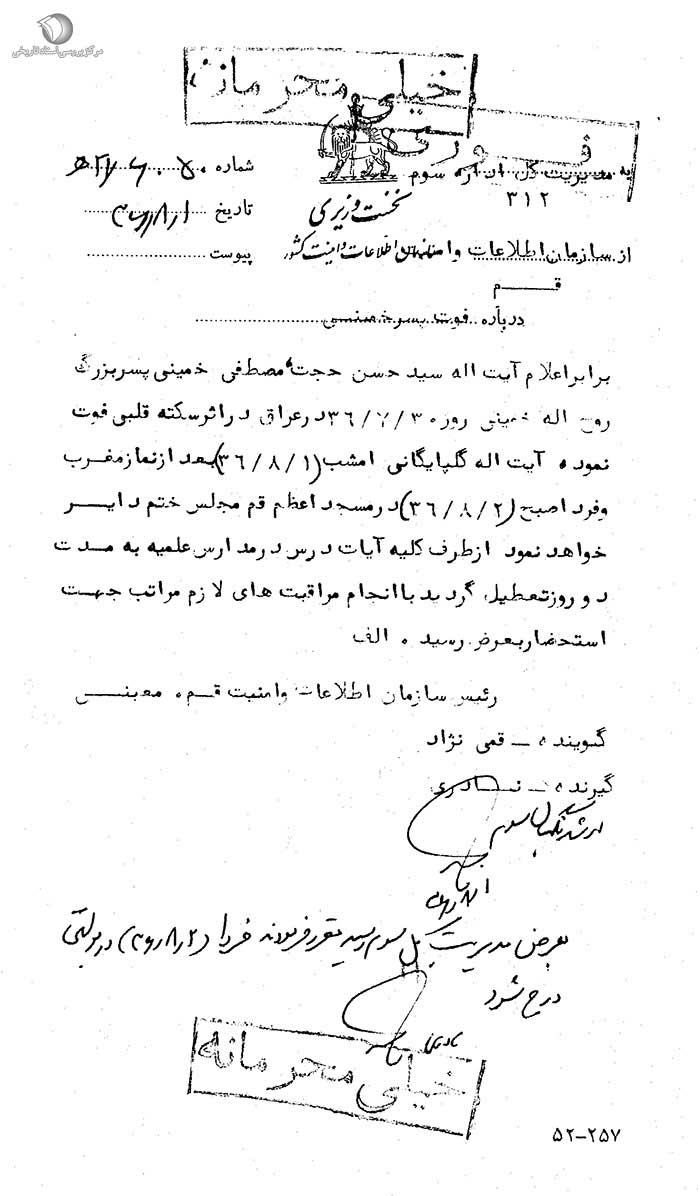 مرکز بررسی اسناد تاریخی
خیلی محرمانه
فوری
به مدیریت کل اداره سوم
۳۱۲
شماره
نخست وزیری
تاریخ ۳۶/۸/۱
سازمان اطلاعات و امنیت کشور
از سازمان اطلاعات و
پیوست
قم
درباره فوت پسر خمینی
برابر اعلام آیت اله سید حسن حجت، مصطفی خمینی پسر بزرگ
روح اله خمینی روز ۳۶/۷/۳۰ در عراق در اثر سکته قلبی فوت
نموده آیت اله گلپایگانی امشب (۳۶/۸/۱) بعد از نماز مغرب
و فردا صبح (۳۶/۸/۲) در مسجد اعظم قم مجلس ختم دایر
خواهد نمود از طرف کلیه آیات درس در مدارس علمیه به مدت
دو روز تعطیل گردید با انجام مراقبت های لازم مراتب جهت
استحضار بعرض رسید. الف
رئیس سازمان اطلاعات و امنیت قم. معینی
گوینده ــ قمی نژاد
گیرنده ــ نادری
۳۶/۸/۱
بعرض مدیریت کل سوم رسید مقرر فرمودند فردا (۳۶/۸/۲) در بولتن
درج شود
خیلی محرمانه
۵۲-۲۵۷